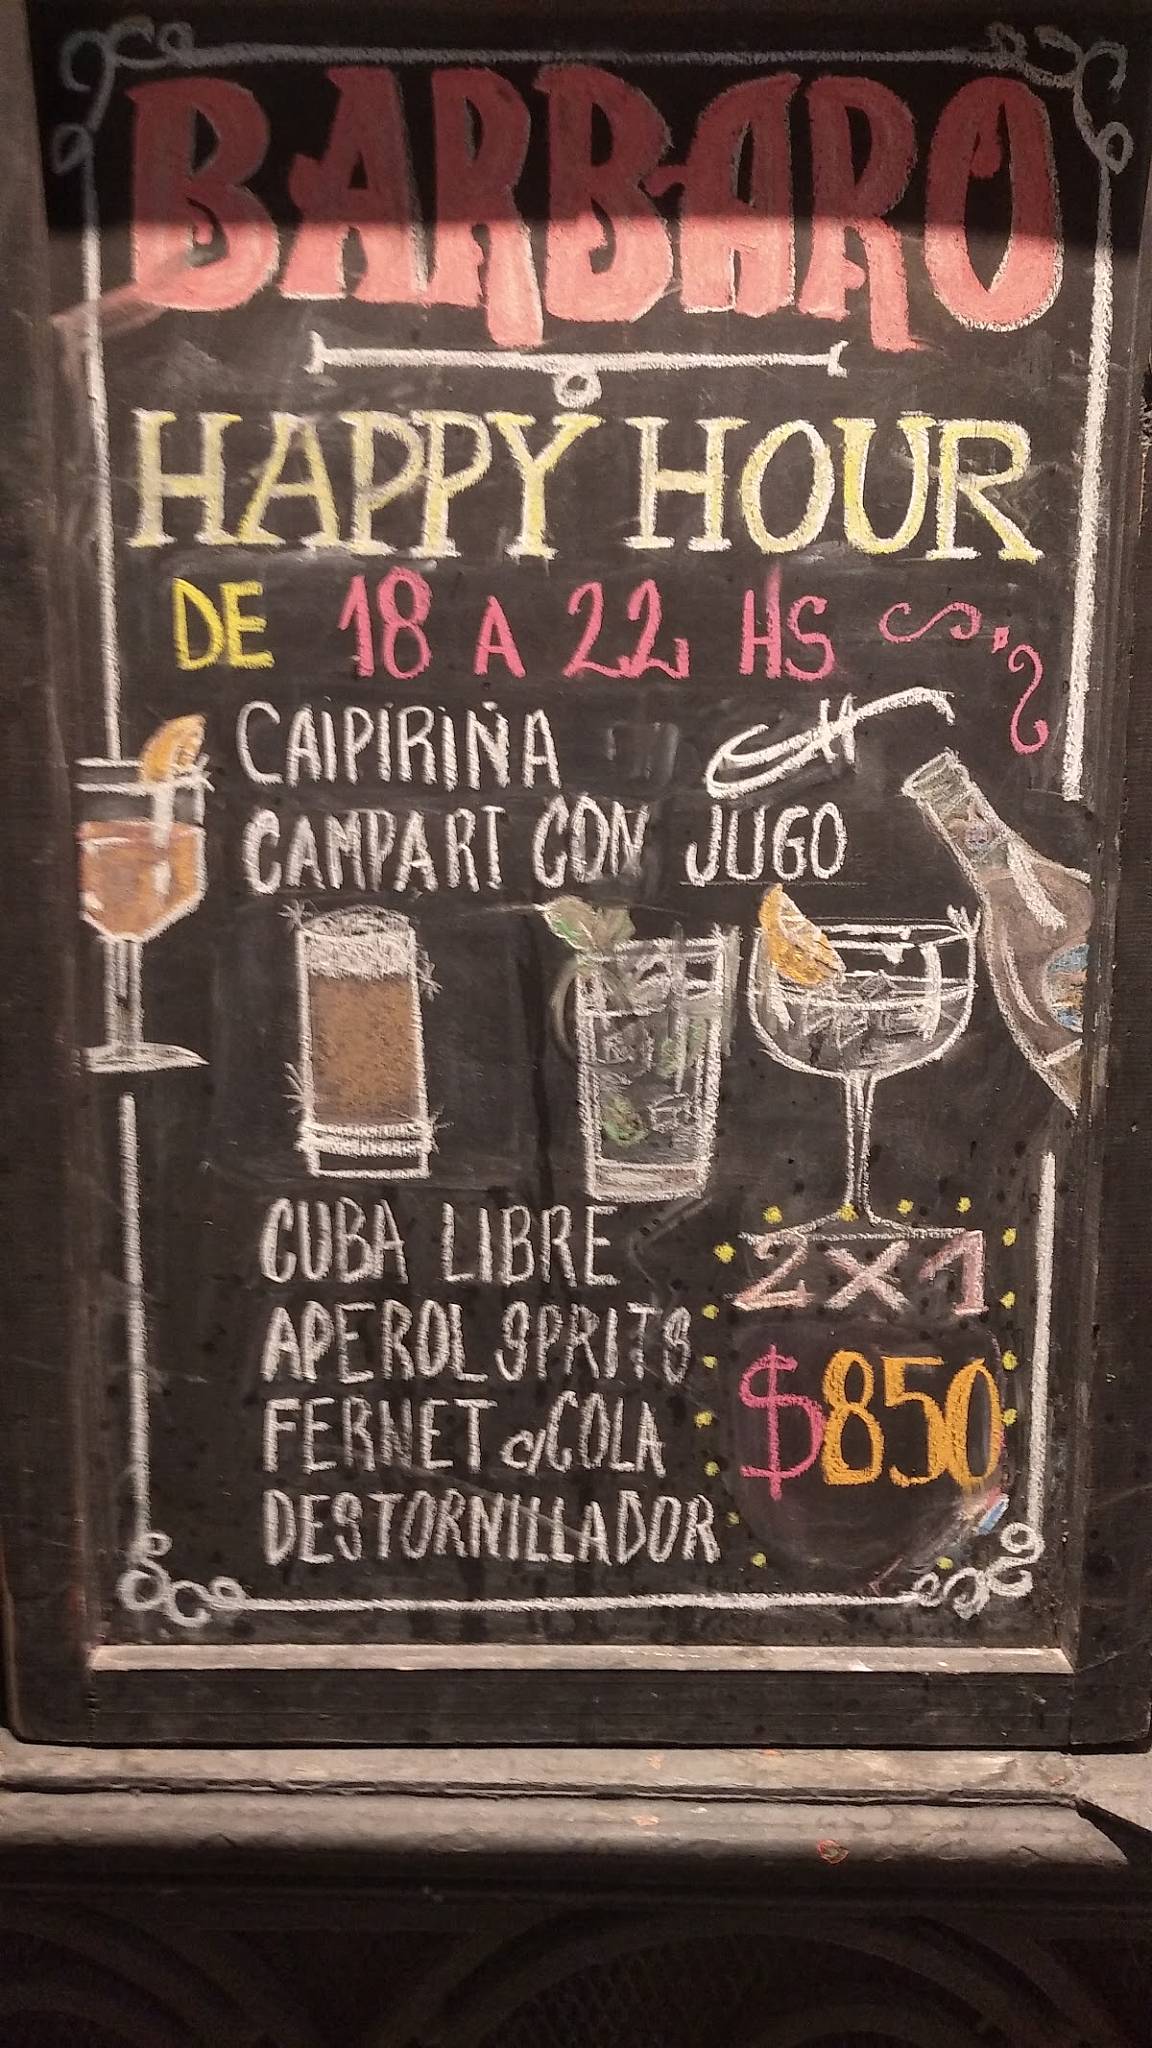 BARBARO
HAPPY HOUR
DE 18 A 22 HS
CAIPIRIÑA
CAMPARI CON JUGO
CUBA LIBRE
APEROL SPRITS
FERNET c/COLA
DESTORNILLADOR
2X1
$850